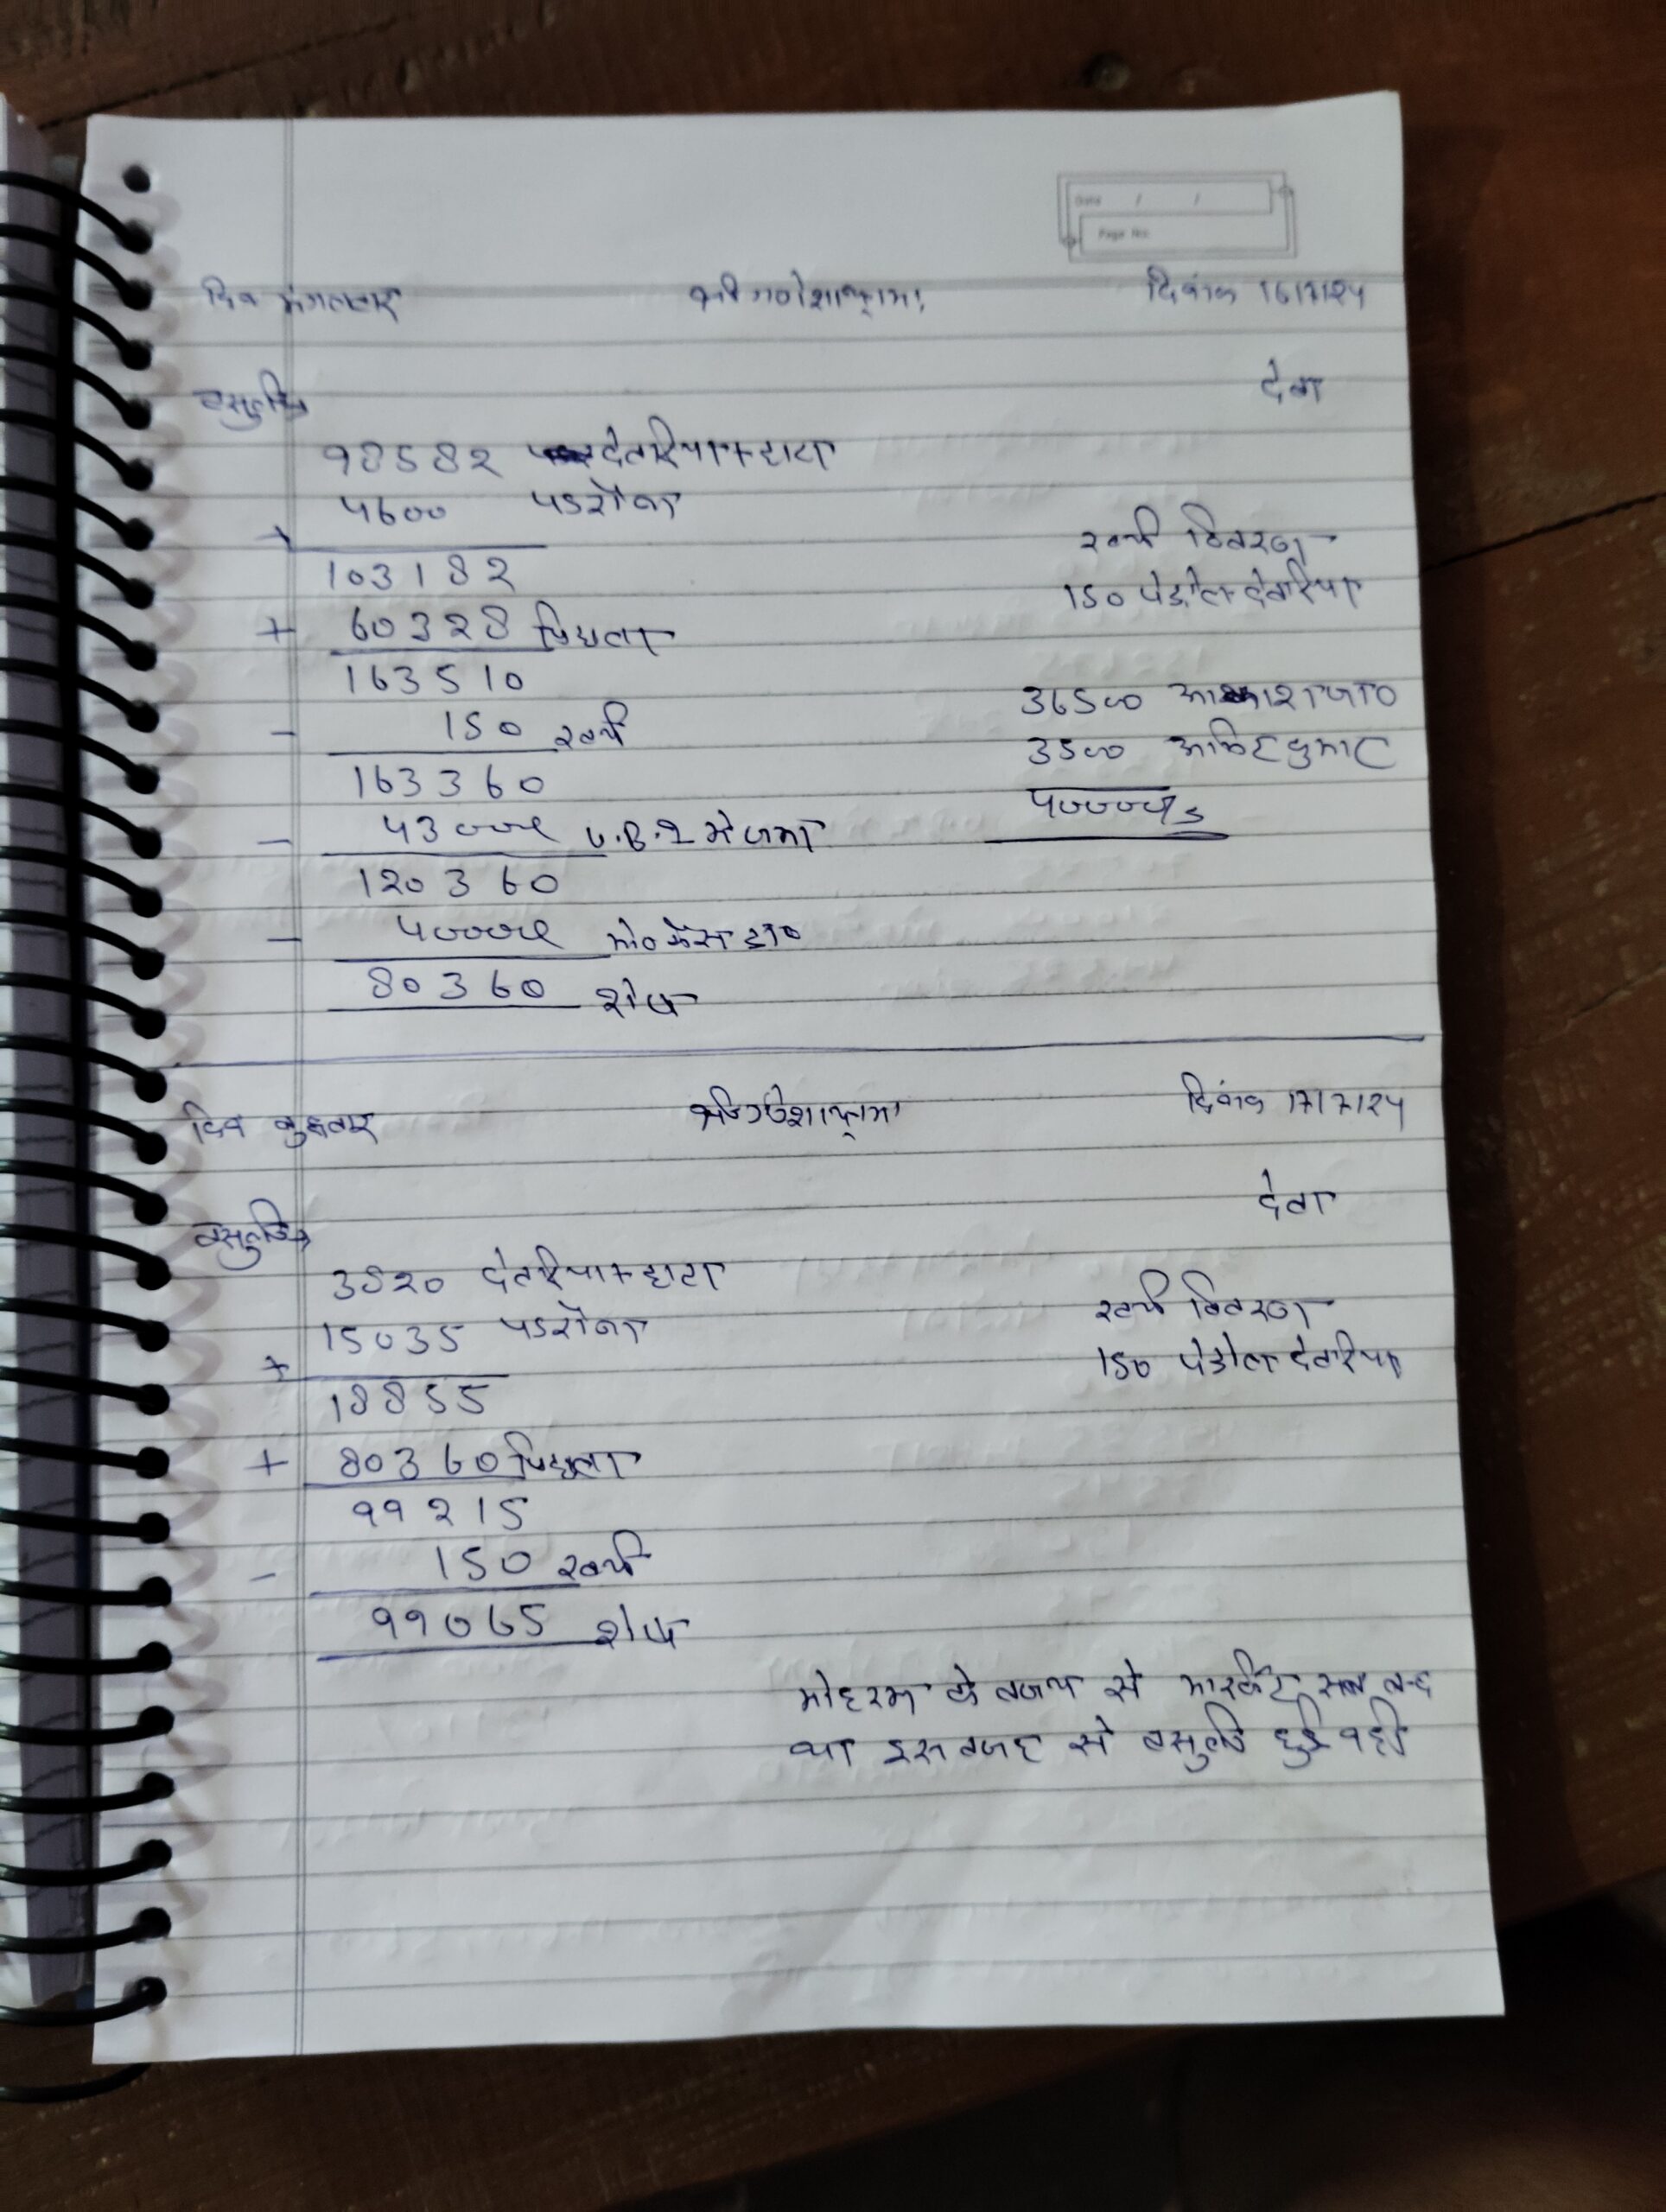 Date / /
Page No.
दिन मंगलवार श्री गणेशाय नमः दिनांक 16/7/२४
वसुलि देना
९8582 देवरिया+हाटा
४600 पडरौना
+
1031८२ खर्च विवरण
150 पेट्रोल देवरिया
+ 60328 पिछला
163510
36500 आकाश जी०
- 150 खर्च
3500
163360
40000
- 43000 U.B.I मे जमा
120360
- 40000
80360 शेष
दिन बुधवार श्री गणेशाय नमः दिनांक 17/7/२४
वसुलि देना
3820 देवरिया+हाटा
15035 पडरौना खर्च विवरण
+ 150 पेट्रोल देवरिया
18855
+ 80360 पिछला
९९215
- 150 खर्च
९९065 शेष
मोहरम के वजय से मारकेट सब बन्द
था इस वजह से वसुलि हुई नही